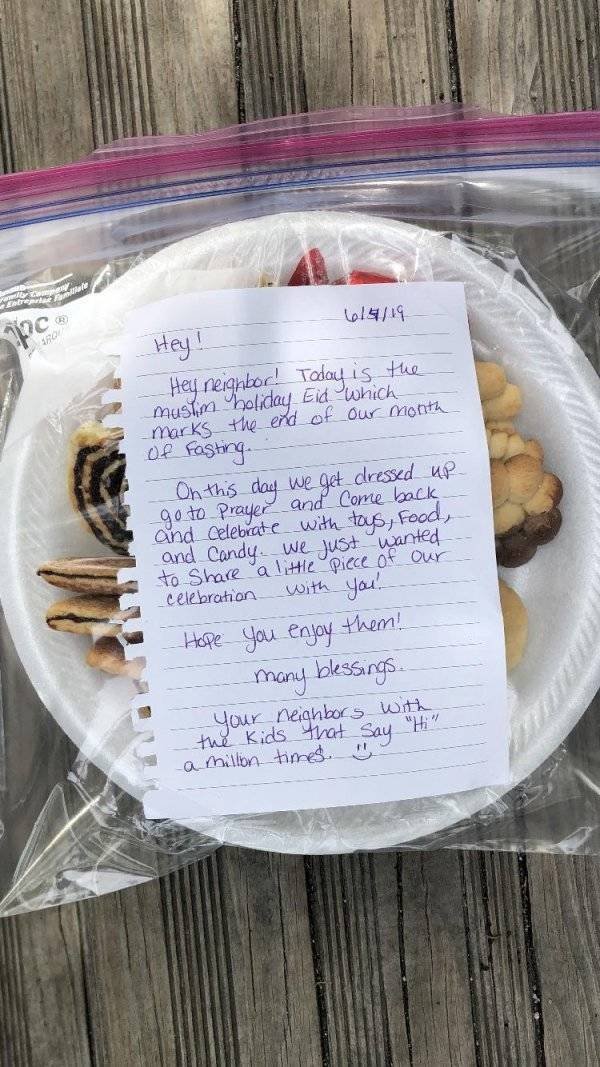 6/4/19
Hey!
Hey neighbor! Today is the
muslim holiday Eid which
marks the end of our month
of Fasting.
On this day we get dressed up
go to prayer and Come back
and celebrate with toys, Food,
and Candy. we just wanted
to Share a little piece of our
celebration with you!
Hope you enjoy them!
many blessings.
your neighbors with
the Kids that say "Hi"
a million times.
Family Company
Entreprise Familiale
®